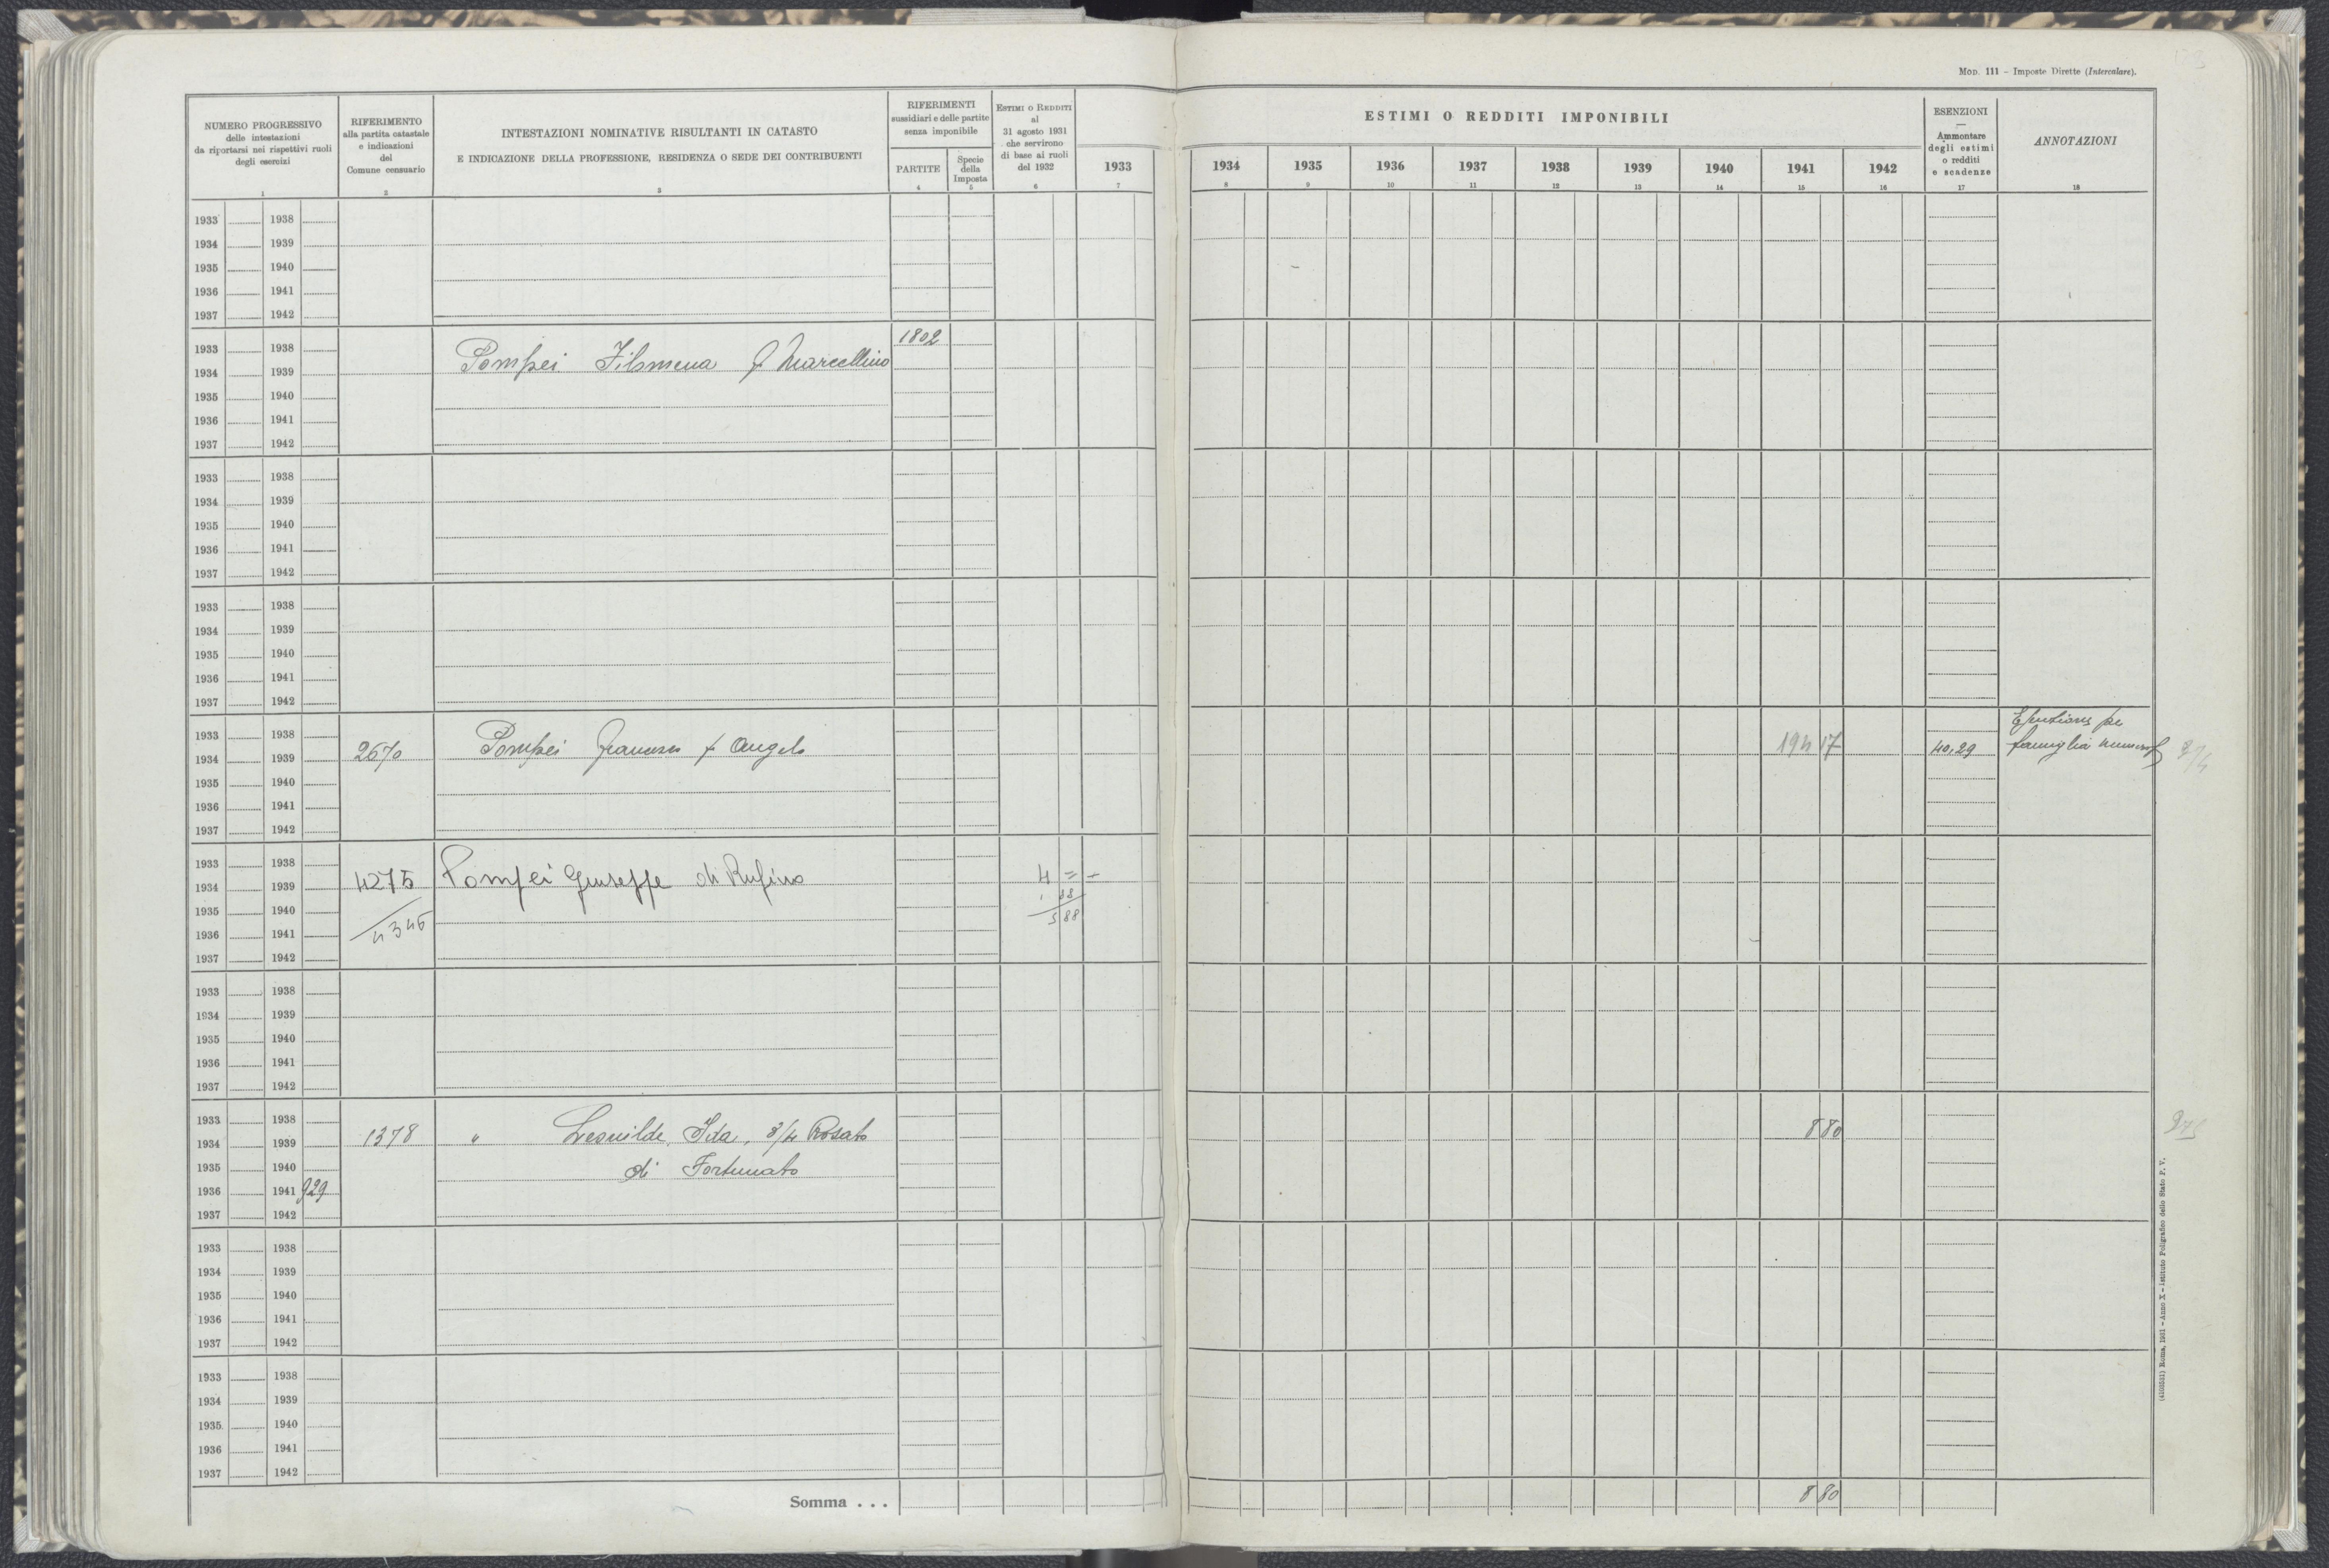 MOD. 111 – Imposte Dirette (Intercalare).
NUMERO PROGRESSIVO
delle intestazioni
da riportarsi nei rispettivi ruoli
degli esercizi
1
RIFERIMENTO
alla partita catastale
e indicazioni
del
Comune censuario
2
INTESTAZIONI NOMINATIVE RISULTANTI IN CATASTO
E INDICAZIONE DELLA PROFESSIONE, RESIDENZA O SEDE DEI CONTRIBUENTI
3
RIFERIMENTI
sussidiari e delle partite
senza imponibile
PARTITE
4
Specie
della
Imposta
5
ESTIMI O REDDITI
al
31 agosto 1931
che servirono
di base ai ruoli
del 1932
6
ESTIMI O REDDITI IMPONIBILI
1933 1934 1935 1936 1937 1938 1939 1940 1941 1942
7 8 9 10 11 12 13 14 15 16
ESENZIONI
—
Ammontare
degli estimi
o redditi
e scadenze
17
ANNOTAZIONI
18
1933 1938
1934 1939
1935 1940
1936 1941
1937 1942
1802
1933 1938
Pompei Filomena f Marcellino
1934 1939
1935 1940
1936 1941
1937 1942
1933 1938
1934 1939
1935 1940
1936 1941
1937 1942
1933 1938
1934 1939
1935 1940
1936 1941
1937 1942
1933 1938
2670 Pompei f Angelo 17 40,29 famiglia
1934 1939
1935 1940
1936 1941
1937 1942
1933 1938
4275 Pompei Giuseppe di Rufino 4 = –
1934 1939
88
1935 1940
4345 5 88
1936 1941
1937 1942
1933 1938
1934 1939
1935 1940
1936 1941
1937 1942
1933 1938
1378 " Ida, 3/4 Rosato 8 80
1934 1939
1935 1940
di Fortunato
1936 1941 929
1937 1942
1933 1938
1934 1939
1935 1940
1936 1941
1937 1942
1933 1938
1934 1939
1935 1940
1936 1941
1937 1942
Somma . . . 8 80
Roma, 1931 – Anno X – Istituto Poligrafico dello Stato P. V.